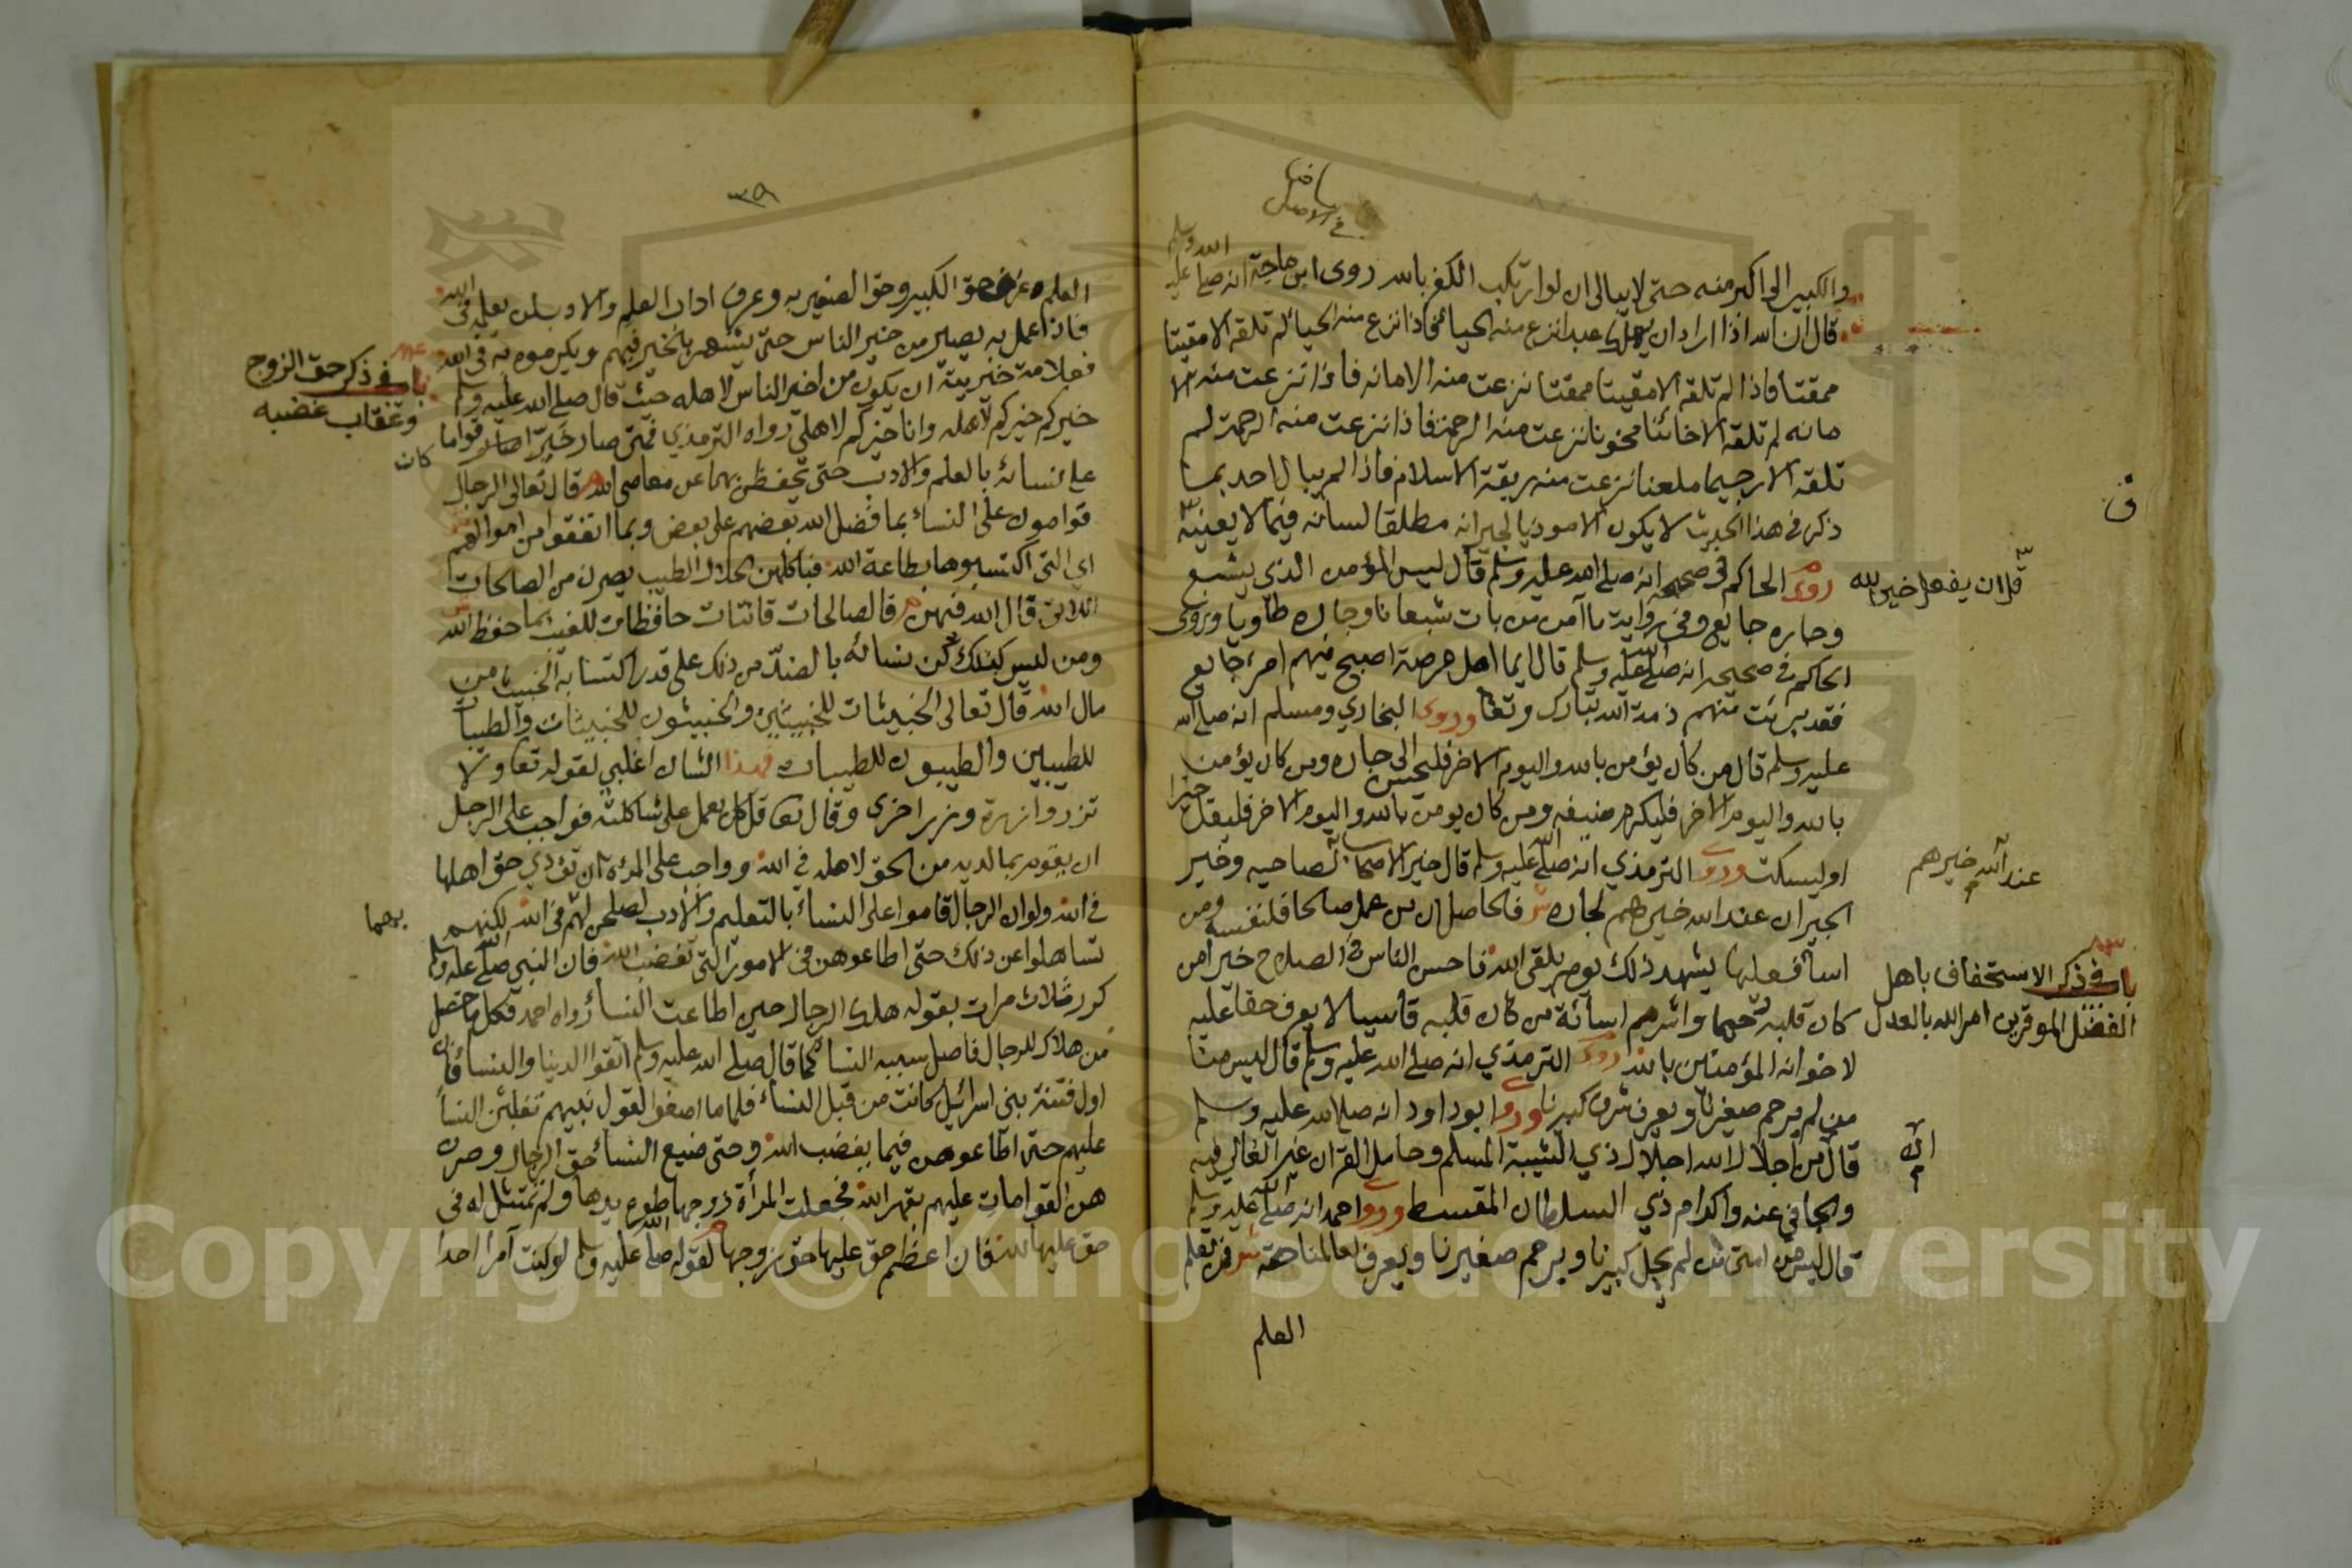 والكبير الى اكبر منه حتى لا يبالى ان لو ارتكب الكفر بالله روى ابن ماجة انه صلى الله عليه وسلم
قال ان الله اذا اراد ان يهلك عبدا نزع منه الحيائ فاذا نزع منه الحيائ لم تلقه الا مقيتا
ممقتا فاذا لم تلقه الا مقيتا ممقتا نزعت منه الامانه فاذا نزعت منه الا
مانه لم تلقه الا خائنا مخونا نزعت منه الرحمة فاذا نزعت منه الرحمة لم
تلقه الا رجيما ملعنا نزعت منه ربقة الاسلام فاذا لم يبال احد بما
ذكر فى هذا الحديث لا يكون الا موذيا لجيرانه مطلقا لسانه فيما لا يعنيه
روى الحاكم فى صحيحه انه صلى الله عليه وسلم قال ليس المؤمن الذي يشبع
وجاره جايع وفى رواية ما آمن من بات شبعانا وجاره طاويا وروى
الحاكم فى صحيحه انه صلى الله عليه وسلم قال ايما اهل عرصة اصبح فيهم امرء جايع
فقد برئت منهم ذمة الله تبارك وتعا وروى البخاري ومسلم انه صلى الله
عليه وسلم قال من كان يؤمن بالله واليوم الاخر فليحسن الى جاره ومن كان يؤمن
بالله واليوم الاخر فليكرم ضيفه ومن كان يومن بالله واليوم الاخر فليقل خيرا
او ليسكت وروى الترمذي انه صلى الله عليه وسلم قال خير الاصحاب لصاحبه وخير
الجيران عند الله خيرهم لجاره فالحاصل ان من عمل صالحا فلنفسه ومن
اسآ فعليها يشهد ذلك يوم يلقى الله فاحسن الناس فى الصلاح خير امن
كان قلبه رحيما واشرهم اسائة من كان قلبه قاسيا لا يوف حقا عليه
لاخوانه المؤمنين بالله روى الترمذي انه صلى الله عليه وسلم قال ليس منا
من لم يرحم صغيرنا ويعرف شرف كبيرنا وروى ابو داود انه صلى الله عليه وسلم
قال من اجلال الله اجلال ذي الشيبة المسلم وحامل القران غير الغالي فيه
والجافي عنه واكرام ذي السلطان المقسط وروى احمد انه صلى الله عليه وسلم
قال ليس من امتى من لم يجل كبيرنا ويرحم صغيرنا ويعرف لعالمنا حقه فمن تعلم
العلم
ف
عند الله خيرهم
باب فى ذكر الاستخفاف باهل
الفضل الموقرين امر الله بالعدل
٣٩
العلم عرف حق الكبير وحق الصغير به وعرف اداب العلم والادب لمن يعلم فى الله
فاذا عمل به يصير من خير الناس حتى يشهر بالخير فيهم ويكرموه به فى الله
فعلامة خيريتة ان يكون من اخير الناس لاهله حيث قال صلى الله عليه وسلم
خيركم خيركم لاهله وانا خيركم لاهلى رواه الترمذي فمتى صار خيرا صار قواما
على نسائه بالعلم والادب حتى تحفظن بهما عن معاصى الله قال تعالى الرجال
قوامون على النساء بما فضل الله بعضهم على بعض وبما انفقوا من اموالهم
اي التى اكتسبوها بطاعة الله فباكلهن الحلال الطيب يصرن من الصالحات
اللاتى قال الله فيهن فالصالحات قانتات حافظات للغيب بما حفظ الله
ومن ليس كذلك كن نسائه بالضد من ذلك على قدر اكتسابه الخبيث من
مال الله قال تعالى الخبيثات للخبيثين والخبيثون للخبيثات والطيبات
للطيبين والطيبون للطيبات فهذا الشان اغلبي لقوله تعا ولا
تزر وازرة وزر اخرى وقال تعا قل كل يعمل على شاكلته فواجب على الرجل
ان يقوم بما لديه من الحق لاهله في الله وواجب على المرءة ان تؤدي حق اهلها
في الله ولو ان الرجال قاموا على النساء بالتعليم والادب لصلحن لهم فى الله لكنهم
تساهلوا عن ذلك حتى اطاعوهن فى الامور التى تغضب الله فان النبي صلى الله عليه وسلم
كرر ثلاث مرات بقوله هلك الرجال حين اطاعت النساء رواه احمد فكل ما حصل
من هلاك للرجال فاصل سببه النساء كما قال صلى الله عليه وسلم اتقوا الدنيا والنساء فان
اول فتنة بنى اسرائيل كانت من قبل النساء فلما ما اصغوا لقول نبيهم تغلبن النساء
عليهم حتى اطاعوهن فيما يغضب الله وحتى ضيع النساء حق الرجال وصرن
هن القوامات عليهم بقهر الله فجعلت المرأة زوجها طوع يدها ولم تمتثل له فى
حق عليها لله فان اعظم حق عليها حق زوجها لقوله صلى الله عليه وسلم لو كنت آمرا احدا
باب فى ذكر حق الزوج
وعقاب غضبه
كان
بهما